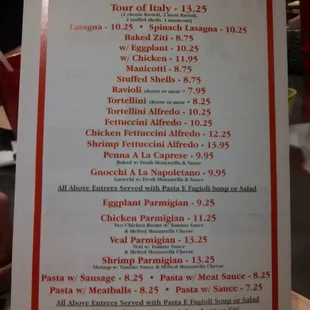 Tour of Italy - 13.25
(2 cheese Ravioli, 2 meat Ravioli,
2 stuffed shells, 1 manicotti)
Lasagna - 10.25 * Spinach Lasagna - 10.25
Baked Ziti - 8.75
w/ Eggplant - 10.25
w/ Chicken - 11.95
Manicotti - 8.75
Stuffed Shells - 8.75
Ravioli cheese or meat - 7.95
Tortellini cheese or meat - 8.25
Tortellini Alfredo - 10.25
Fettuccini Alfredo - 10.25
Chicken Fettuccini Alfredo - 12.25
Shrimp Fettuccini Alfredo - 13.95
Penna A La Caprese - 9.95
Baked w/ Fresh Mozzarella & Sauce
Gnocchi A La Napoletano - 9.95
Gnocchi w/ Fresh Mozzarella & Sauce
All Above Entrees Served with Pasta E Fagioli Soup or Salad
Eggplant Parmigian - 9.25
Chicken Parmigian - 11.25
Two Chicken Breast w/ Tomato Sauce
& Melted Mozzarella Cheese
Veal Parmigian - 13.25
Veal w/ Tomato Sauce
& Melted Mozzarella Cheese
Shrimp Parmigian - 13.25
Shrimp w/ Tomato Sauce & Melted Mozzarella Cheese
Pasta w/ Sausage - 8.25 * Pasta w/ Meat Sauce - 8.25
Pasta w/ Meatballs - 8.25 * Pasta w/ Sauce - 7.25
All Above Entrees Served with Pasta E Fagioli Soup or Salad